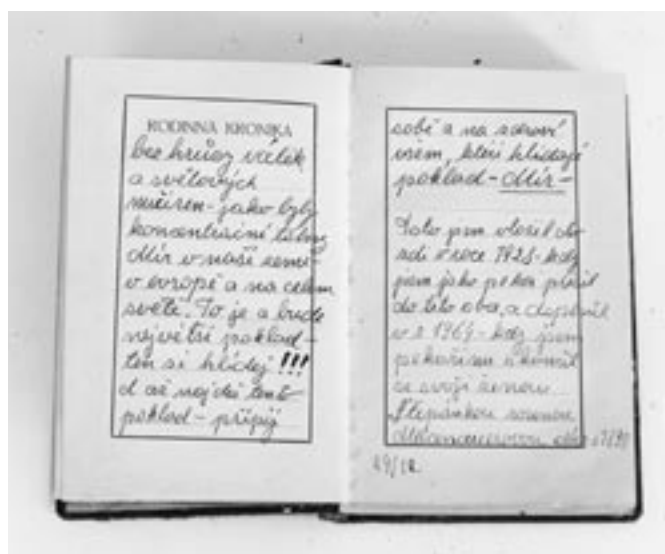 RODINNÁ KRONIKA
bez hrůzy válek
a světových
mučíren - jako byly
koncentrační tábory
Mír v naší zemi -
v evropě a na celém
světě. To je a bude
největší poklad -
ten si hlídej !!!
A až najdeš tento
poklad - připij
sobě a na zdraví
všem, kteří hlídají
poklad - Mír -
Toto jsem vložil do
zdi v roce 1928 - kdy
jsem jako pekař přišel
do této obce, a doplnil
v r 1964 - kdy jsem
pekařinu skončil
se svojí ženou
Štěpánkou rozenou
29/12